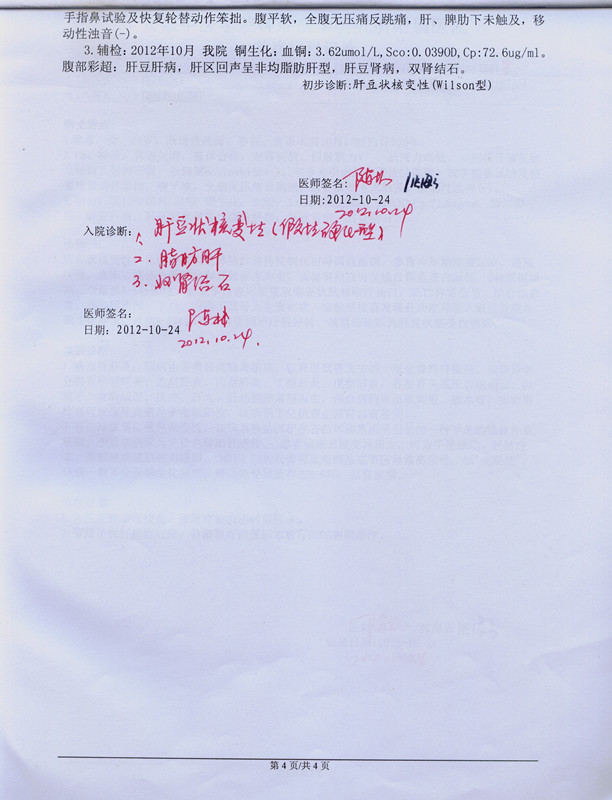 手指鼻试验及快复轮替动作笨拙。腹平软，全腹无压痛反跳痛，肝、脾肋下未触及，移
动性浊音(-)。
3.辅检：2012年10月 我院 铜生化：血铜：3.62umol/L,Sco:0.039OD,Cp:72.6ug/ml。
腹部彩超：肝豆肝病，肝区回声呈非均脂肪肝型，肝豆肾病，双肾结石。
初步诊断:肝豆状核变性(Wilson型)
医师签名:
日期:2012-10-24
2012.10.24
入院诊断：1、肝豆状核变性(假性硬化型)
2、脂肪肝
3、双肾结石
医师签名:
日期: 2012-10-24
2012.10.24.
第 4 页/共 4 页